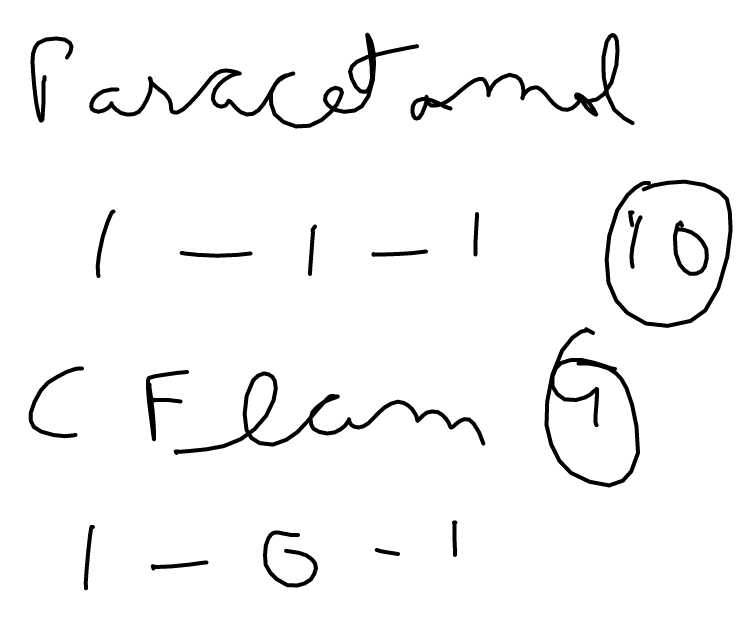 Paracetamol
1 - 1 - 1 10
C Flam 9
1 - 0 - 1